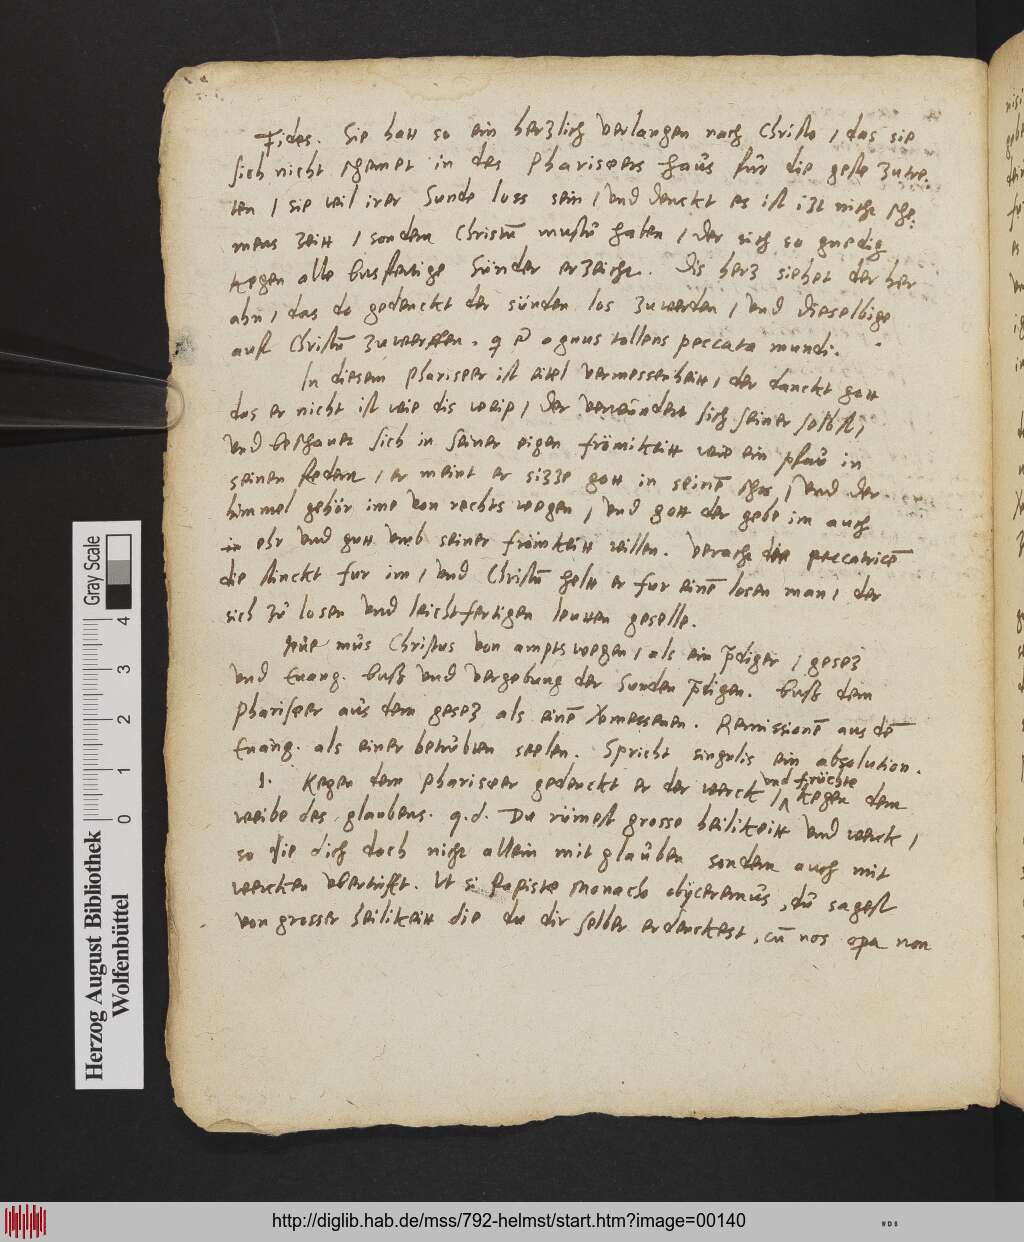 Fides. Sie hatt so ein herzlich verlangen nach Christo / das sie
sich nicht schemet in des Phariseers haus für die geste zutre:
ten / sie wil irer Sunde loss sein / und denckt es ist izt nicht sche:
mens zeitt / sondern Christū mustu haben / der sich so gnedig
kegen alle busfertige Sünder erzeicht. Dis herz siehet der her
ahn / das do gedenckt der sünden los zuwerden / und dieselbige
auff Christū zuwerffen. q ē agnus tollens peccata mundi.
In diesem Phariseer ist eitel vermessenheitt / der danckt gott
das er nicht ist wie dis weip / der verwundert sich seiner selbst /
und beschauet sich in seiner eigen frömikeitt wie ein pfau in
seinen federn / er meint er sizze gott in seinē schos / und der
himmel gehör ime von rechts wegen / und gott der gebe im auch
ehr und gutt umb seiner frömkeitt willen. Veracht die peccatricē
die stinckt fur im / und Christū helt er fur einē losen man / der
sich zu losen und leichtfertigen leutten geselle.
Nue mus Christus von ampts wegen / als ein p̄diger / gesez
und Euang. buss und vergebung der Sunden p̄digen. Buss dem
Phariseer aus dem gesez als einē vermessenen. Remissionē aus dē
Euang. als einer betrubten seelen. Spricht singulis ein absolution.
1. Kegen dem Phariseer gedenckt er der werck / und früchte kegen dem
weibe des glaubens. q.d. Du rümest grosse heilikeitt und werck /
so sie dich doch nicht allein mit glauben sondern auch mit
wercken ubertrifft. Ut si Papistę monacho obijceremus, du sagest
von grosser heilikeitt die du dir selber erdenckest, cū nos opa non
Gray Scale
0 1 2 3 4
Herzog August Bibliothek
Wolfenbüttel
http://diglib.hab.de/mss/792-helmst/start.htm?image=00140